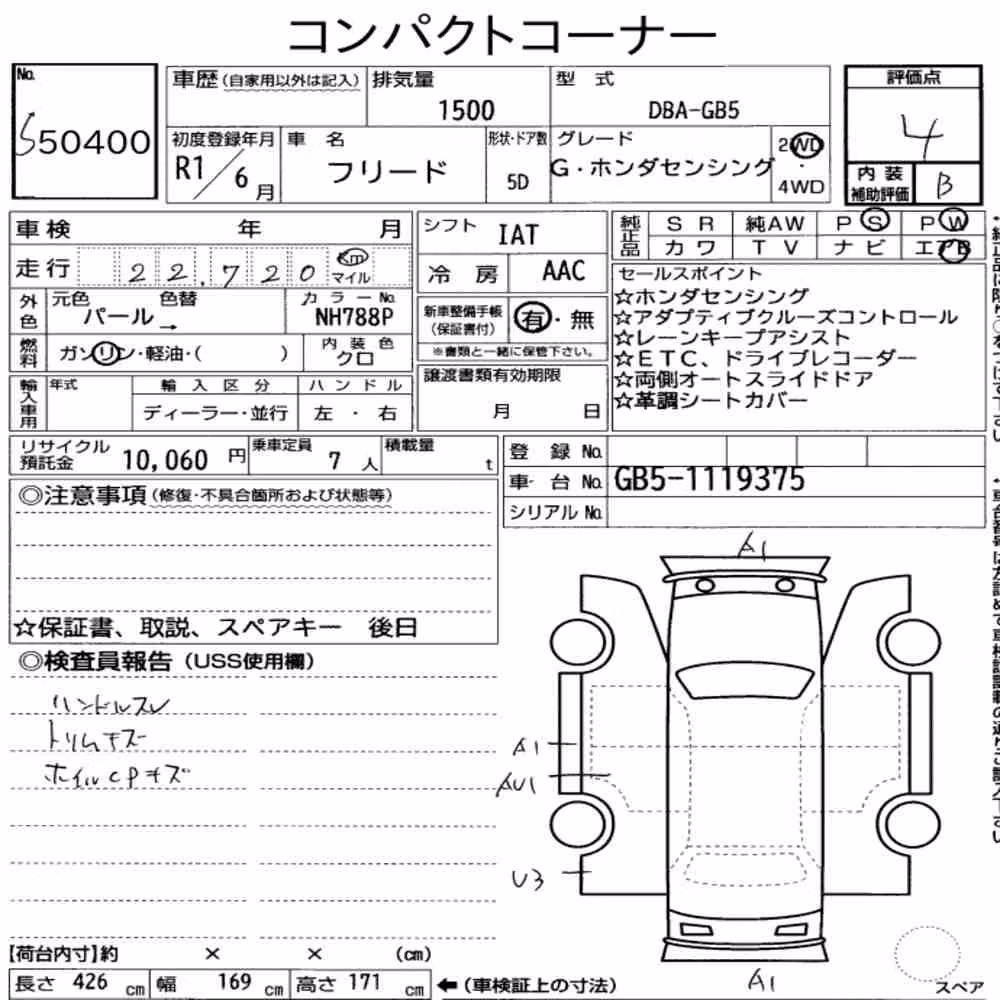 コンパクトコーナー
No.
S50400
車歴(自家用以外は記入)
排気量
1500
型 式
DBA-GB5
評価点
4
初度登録年月
R1/6月
車 名
フリード
形状・ドア数
5D
グレード
G・ホンダセンシング
2WD
・
4WD
内装
補助評価
B
車検 年 月
走行 22,720 Km
マイル
シフト IAT
冷 房 AAC
純正品
SR 純AW PS PW
カワ TV ナビ エアB
外色
元色 色替
パール→
カラーNo.
NH788P
燃料
ガソリン・軽油・( )
内装色
クロ
新車整備手帳
(保証書付)
有・無
※書類と一緒に保管下さい。
セールスポイント
☆ホンダセンシング
☆アダプティブクルーズコントロール
☆レーンキープアシスト
☆ETC、ドライブレコーダー
☆両側オートスライドドア
☆革調シートカバー
輸入車用
年式
輸入区分
ディーラー・並行
ハンドル
左・右
譲渡書類有効期限
月 日
リサイクル
預託金
10,060 円
乗車定員
7 人
積載量
t
登 録 No.
車 台 No. GB5-1119375
シリアル No.
◎注意事項(修復・不具合箇所および状態等)
☆保証書、取説、スペアキー 後日
◎検査員報告(USS使用欄)
ハンドルスレ
トリムキズ
ホイルCPキズ
A1
A1
AU1
U3
A1
スペア
【荷台内寸】約 × × (cm)
長さ 426 cm 幅 169 cm 高さ 171 cm ←(車検証上の寸法)